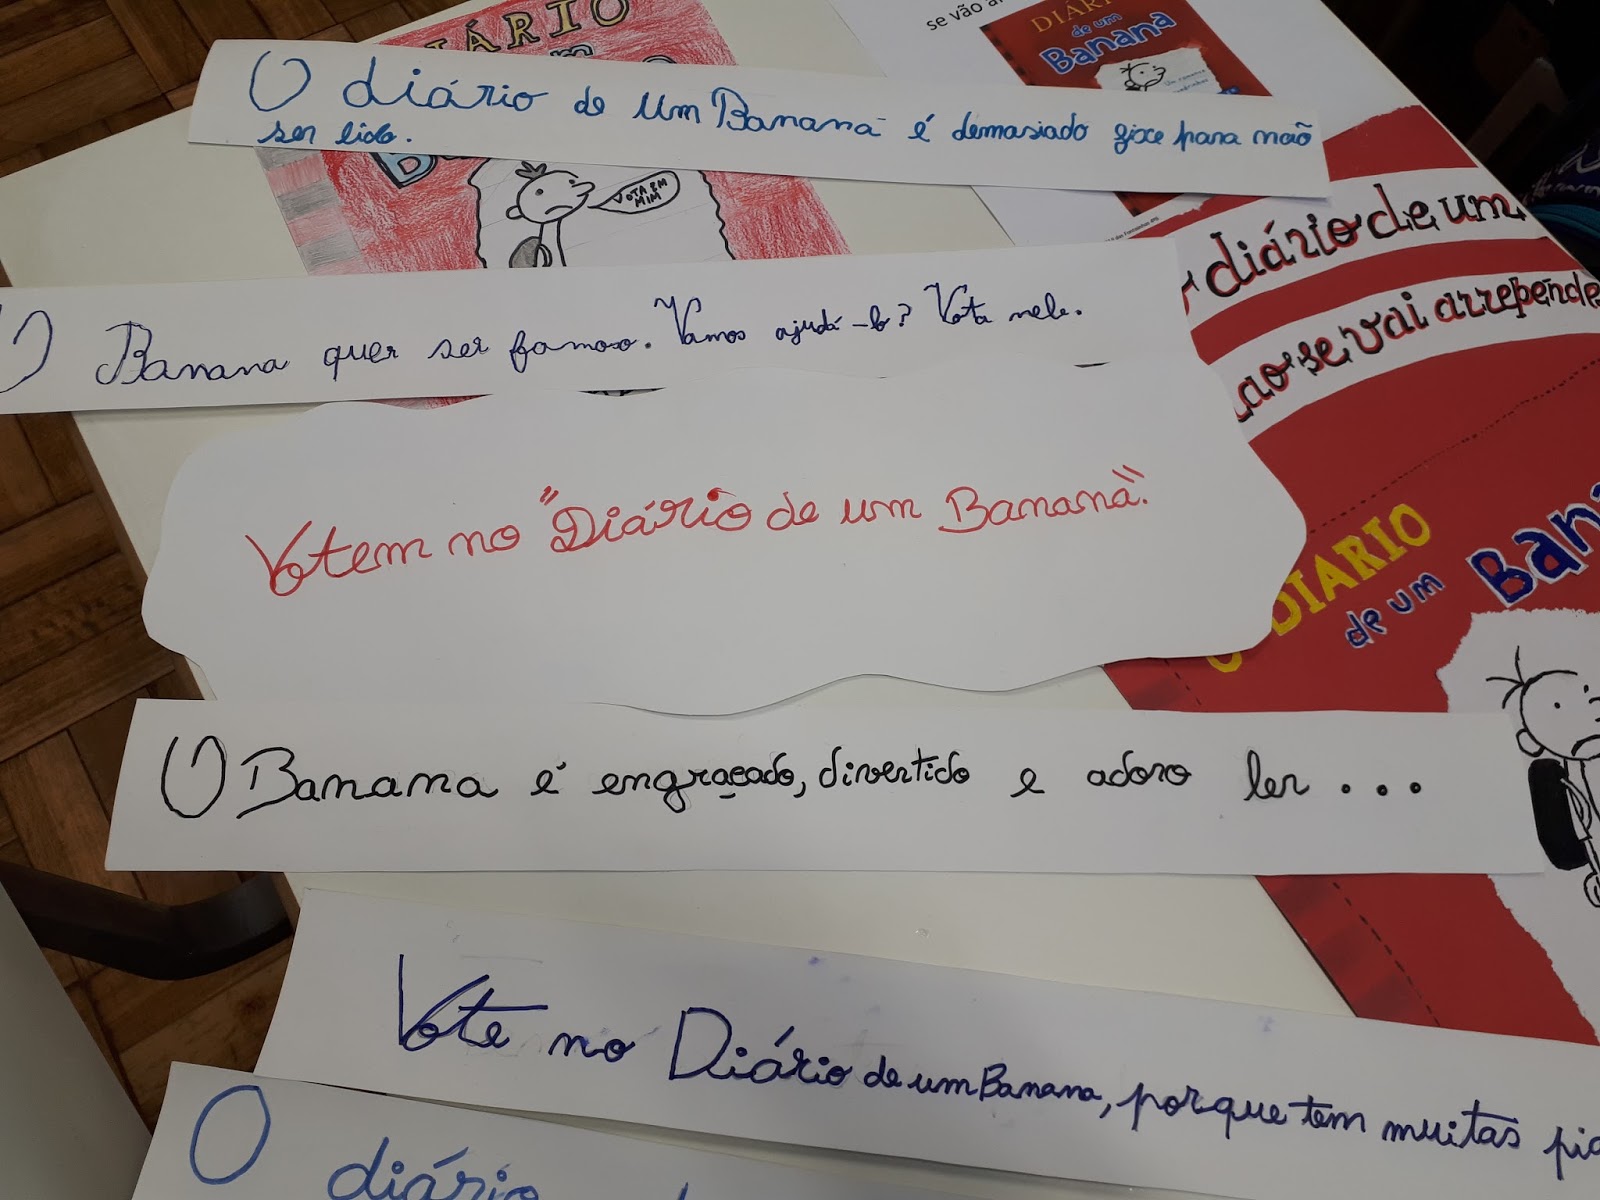 DIÁRIO
se vão a
DIÁR
de um
Banana
O diário de um Banana é demasiado fixe para não
ser lido.
VOTA EM
MIM
diário de um
O Banana quer ser famoso. Vamos ajudá-lo? Vota nele.
ao se vai arrepende
Votem no "Diário de um Banana".
O DIARIO
de um
Ban
O Banana é engraçado, divertido e adora ler...
Vote no Diário de um Banana, porque tem muitas pia
O diário